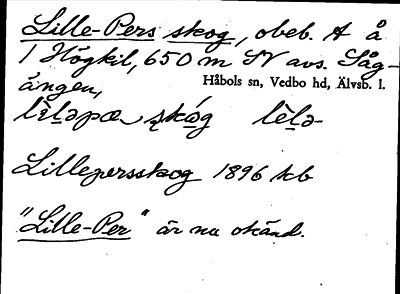 Lille-Pers skog, obeb. A å
1 Högkil, 650 m SV avs. Såg-
ängen, Håbols sn, Vedbo hd, Älvsb. l.
Lillepersskog 1896 kb
"Lille-Per" är nu okänd.